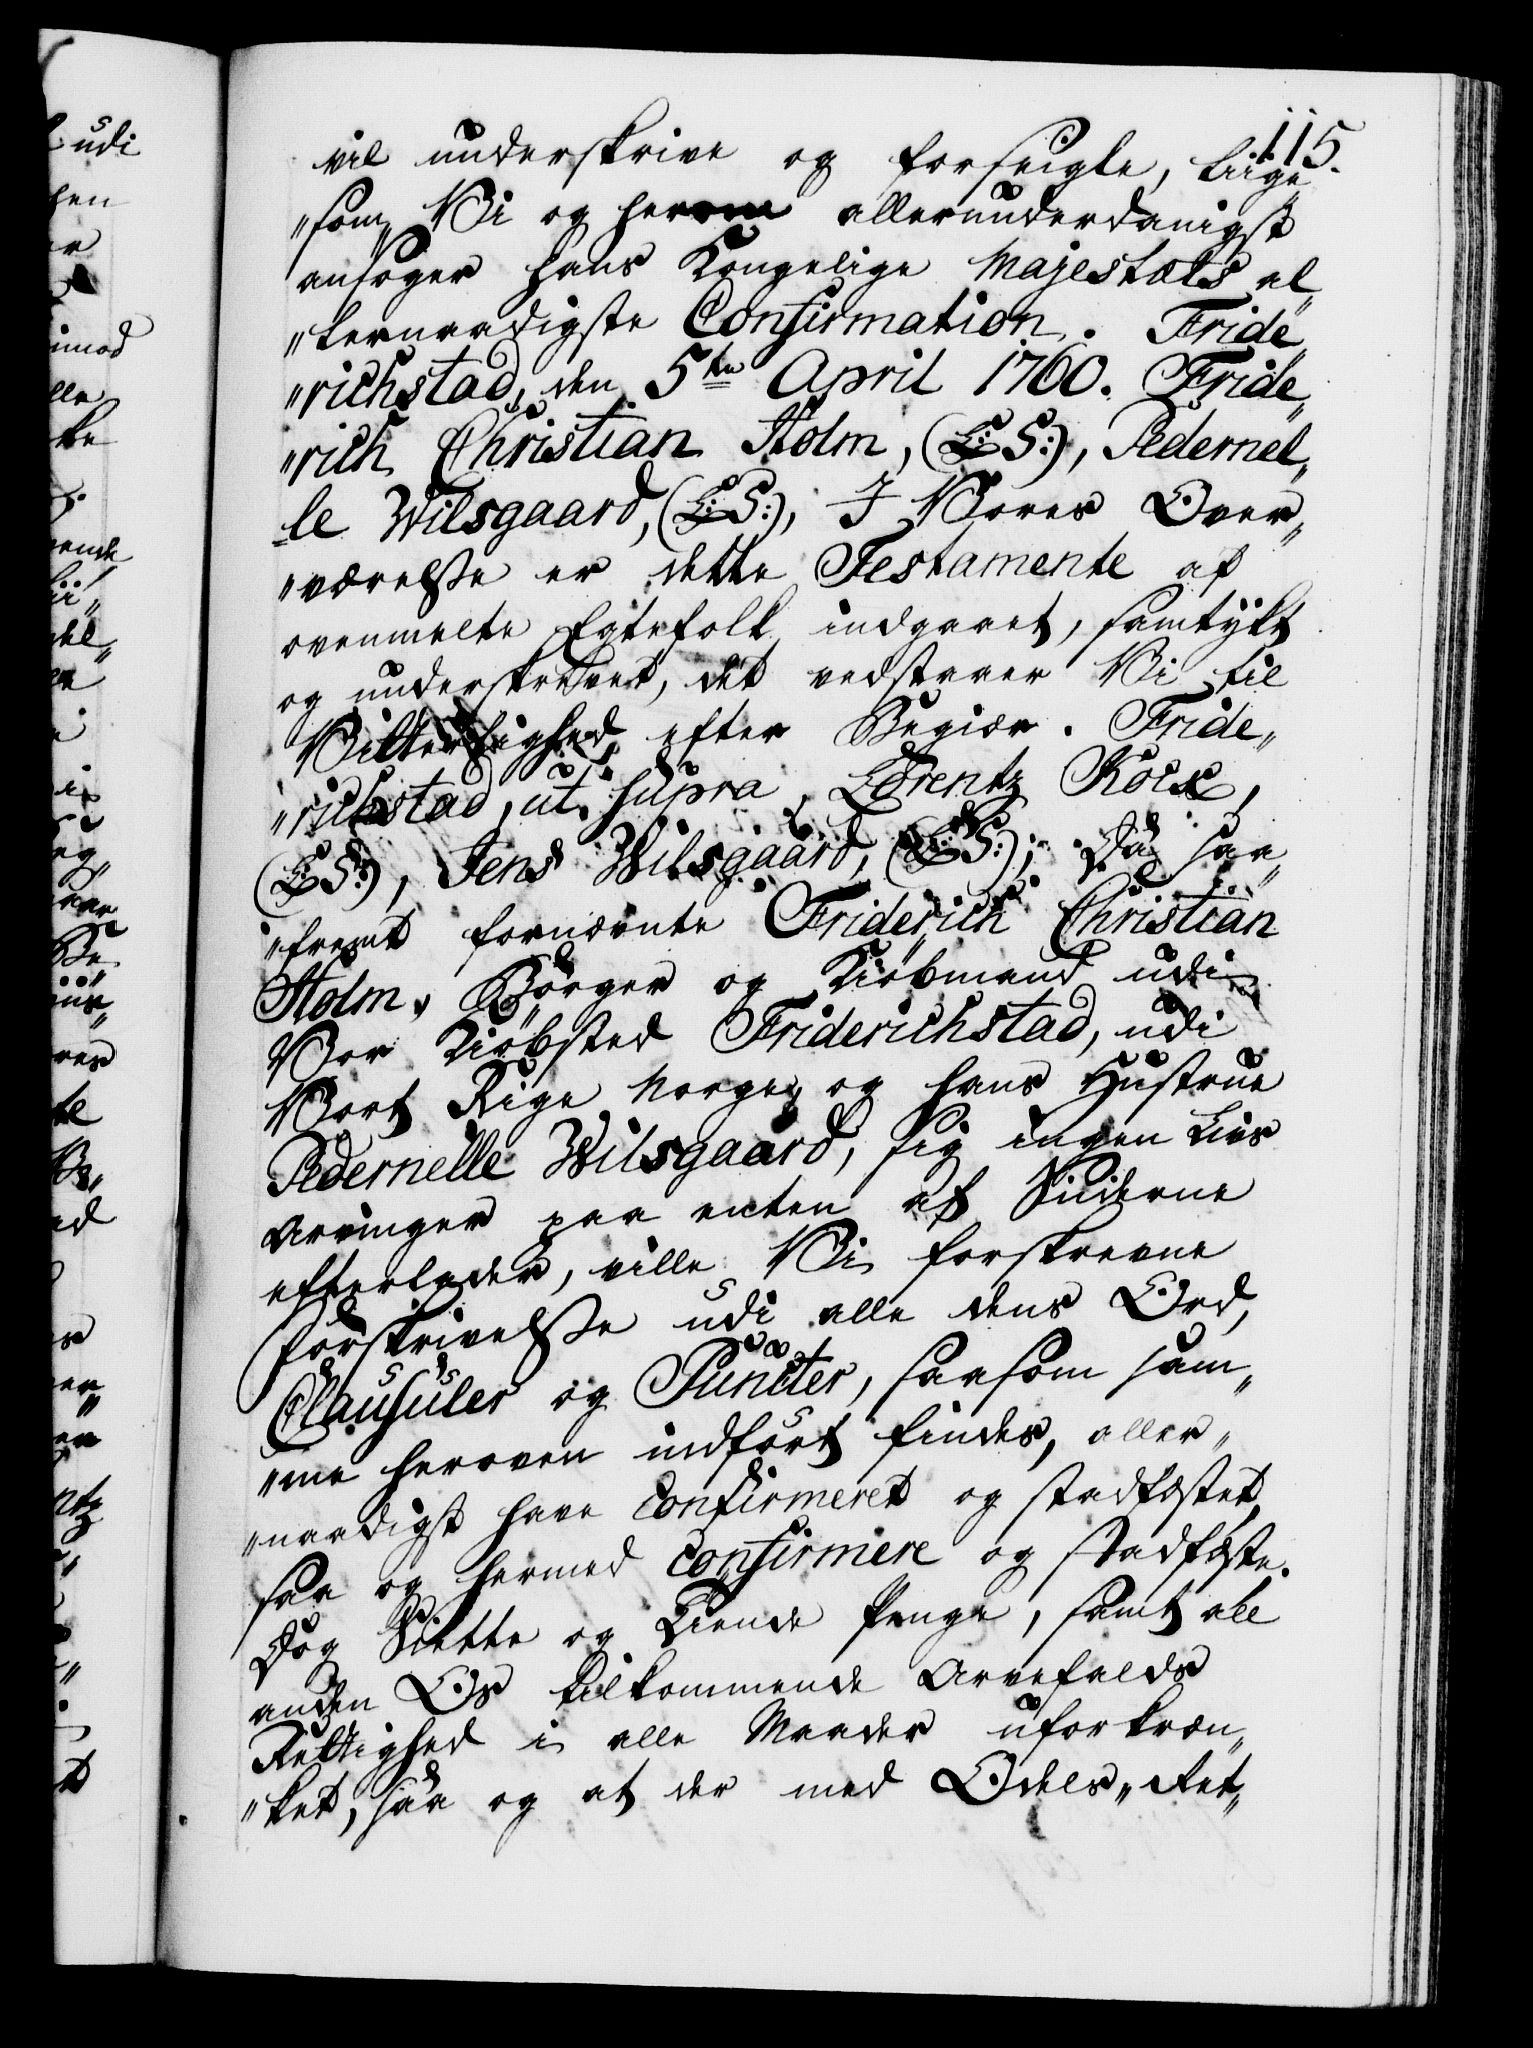 115.
vil underskrive og forseigle, liige„
„som Vi og herom allerunderdanigst
ansøger Hans Kongelige Majestæts al„
„lernaadigste Confirmation. Fride„
„richstad, den 5te April 1760. Fride„
„rich Christian Holm, (L:S:), Pedernel„
le Wilsgaard, (L:S:), I Vores Over„
„værelsse er dette Testamente af
ovenmelte Egtefolk indgaaet, samtykt
og underskrevet, det vedstaaer Vi til
Vitterlighed efter Begiær. Fride„
„richstad, ut supra, Lorentz Kock,
(L:S:), Jens Wilsgaard, (L:S:); Da saa„
„fremt fornævnte Friderich Christian
Holm, Borger og Kiøbmand udi
Vor Kiøbsted Friderichstad, udi
Vort Rige Norge, og hans Hustrue
Pedernelle Wilsgaard, sig ingen Livs
Arvinger paa enten af Siiderne
efterlader, ville Vi forskrevne
Forskrivelsse udi alle dens Ord,
Clausuler og Puncter, saasom sam„
„me heroven indført findes, aller„
„naadigst have confirmeret og stadfæstet,
saa og hermed confirmere og stadfæste.
Dog Siette og Tiende Penge, samt all
anden Os tilkommende Arvefalds
Rettighed i alle Maader uforkræn„
„ket, saa og at der med Odels„Ret„